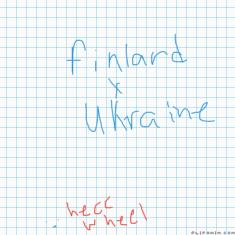 finland
x
Ukraine
hecc
wheel
flipanim.com